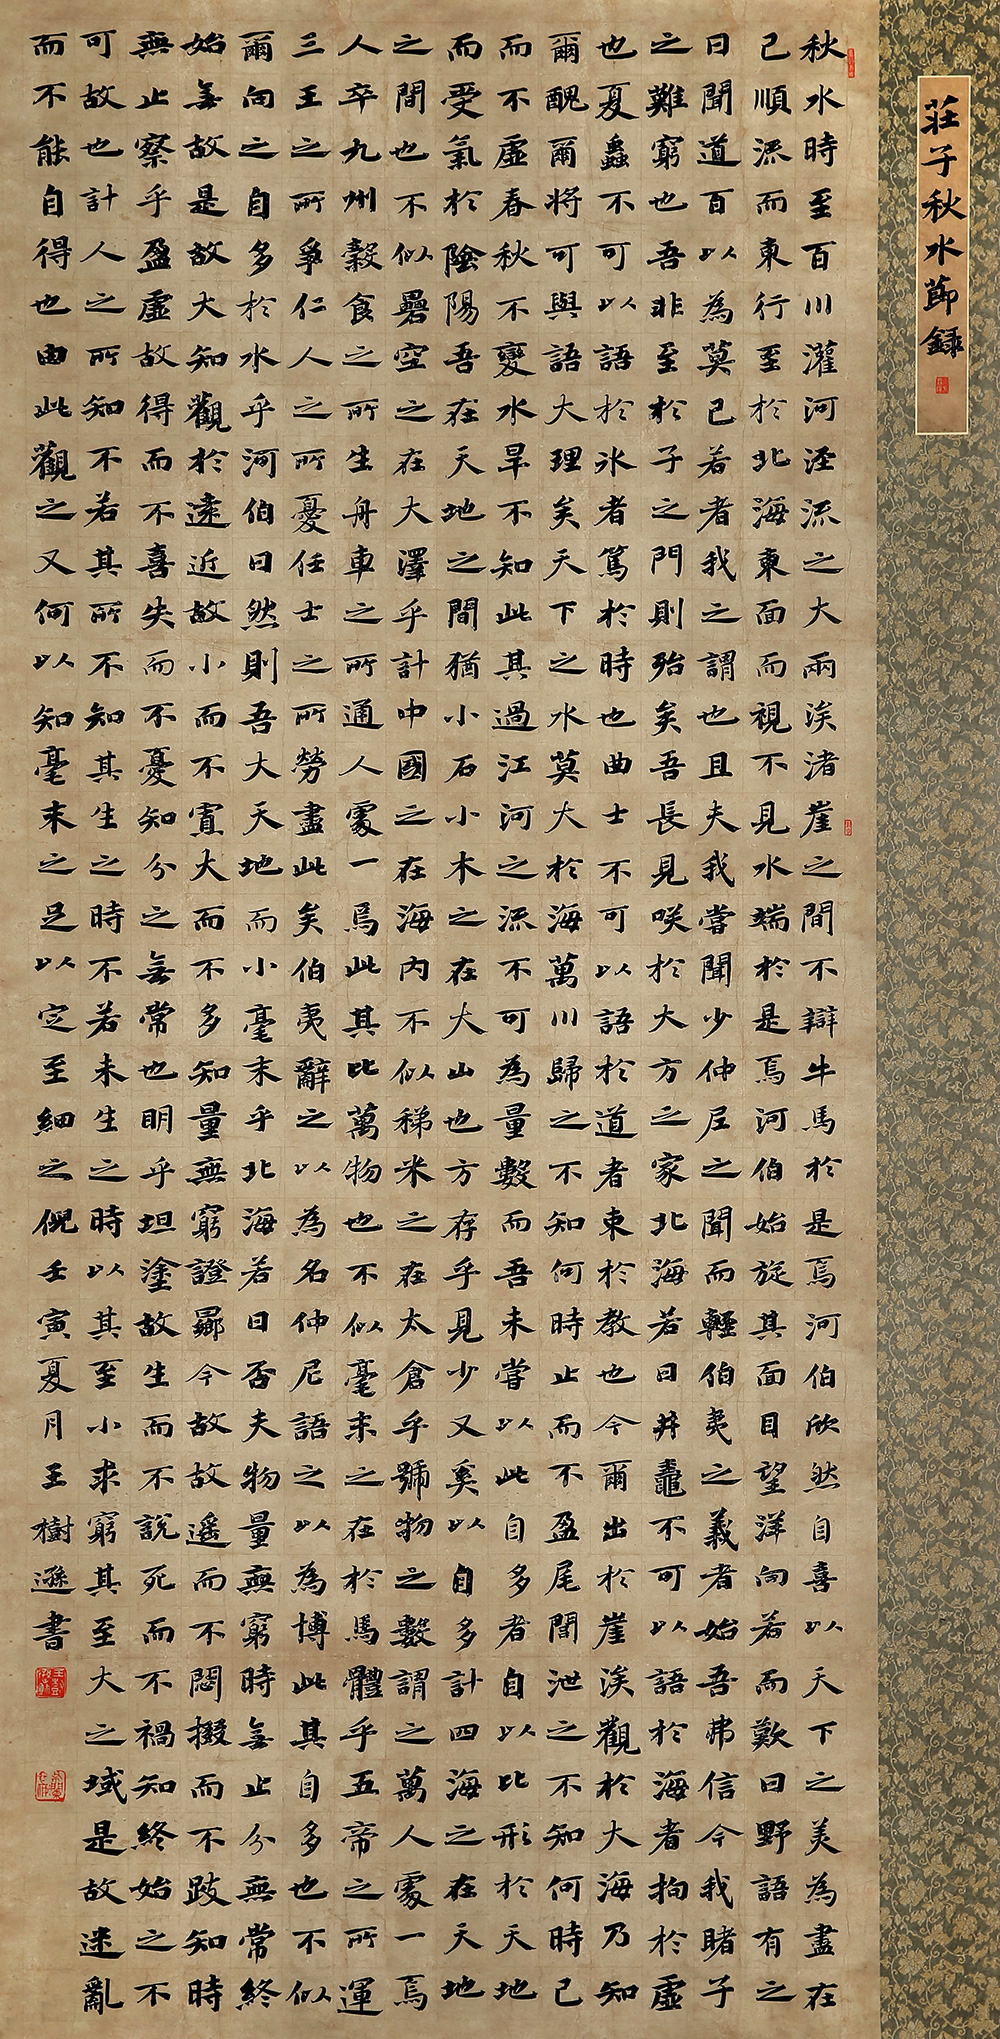 莊子秋水節錄
秋水時至百川灌河涇流之大兩涘渚崖之間不辯牛馬於是焉河伯欣然自喜以天下之美為盡在
己順流而東行至於北海東面而視不見水端於是焉河伯始旋其面目望洋向若而歎曰野語有之
曰聞道百以為莫己若者我之謂也且夫我嘗聞少仲尼之聞而輕伯夷之義者始吾弗信今我睹子
之難窮也吾非至於子之門則殆矣吾長見咲於大方之家北海若曰井鼃不可以語於海者拘於虛
也夏蟲不可以語於冰者篤於時也曲士不可以語於道者束於教也今爾出於崖涘觀於大海乃知
爾醜爾將可與語大理矣天下之水莫大於海萬川歸之不知何時止而不盈尾閭泄之不知何時已
而不虛春秋不變水旱不知此其過江河之流不可為量數而吾未嘗以此自多者自以比形於天地
而受氣於陰陽吾在天地之間猶小石小木之在大山也方存乎見少又奚以自多計四海之在天地
之間也不似礨空之在大澤乎計中國之在海內不似稊米之在太倉乎號物之數謂之萬人處一焉
人卒九州穀食之所生舟車之所通人處一焉此其比萬物也不似毫末之在於馬體乎五帝之所運
三王之所爭仁人之所憂任士之所勞盡此矣伯夷辭之以為名仲尼語之以為博此其自多也不似
爾向之自多於水乎河伯曰然則吾大天地而小毫末乎北海若曰否夫物量無窮時無止分無常終
始無故是故大知觀於遠近故小而不寡大而不多知量無窮證曏今故故遙而不悶掇而不跂知時
無止察乎盈虛故得而不喜失而不憂知分之無常也明乎坦塗故生而不說死而不禍知終始之不
可故也計人之所知不若其所不知其生之時不若未生之時以其至小求窮其至大之域是故迷亂
而不能自得也由此觀之又何以知毫末之足以定至細之倪壬寅夏月王樹遜書